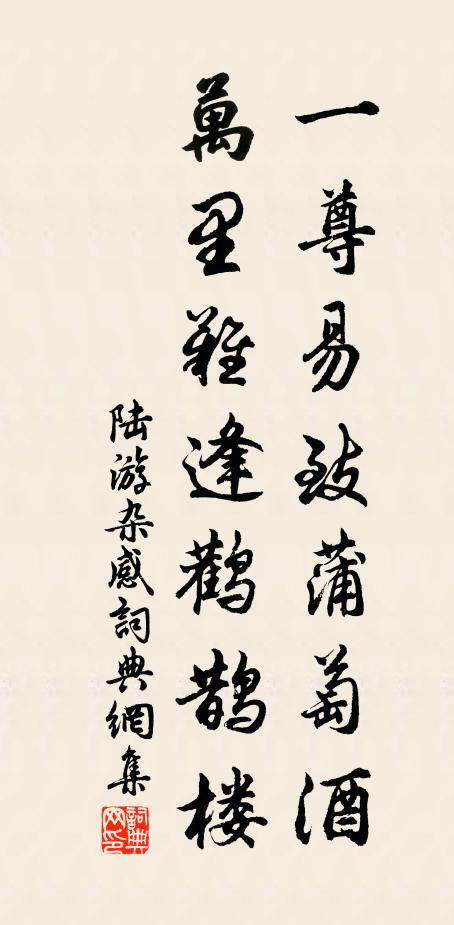 一尊易致蒲萄酒
萬里難逢鸛鵲楼
陆游杂感詞典網集
詞典网印